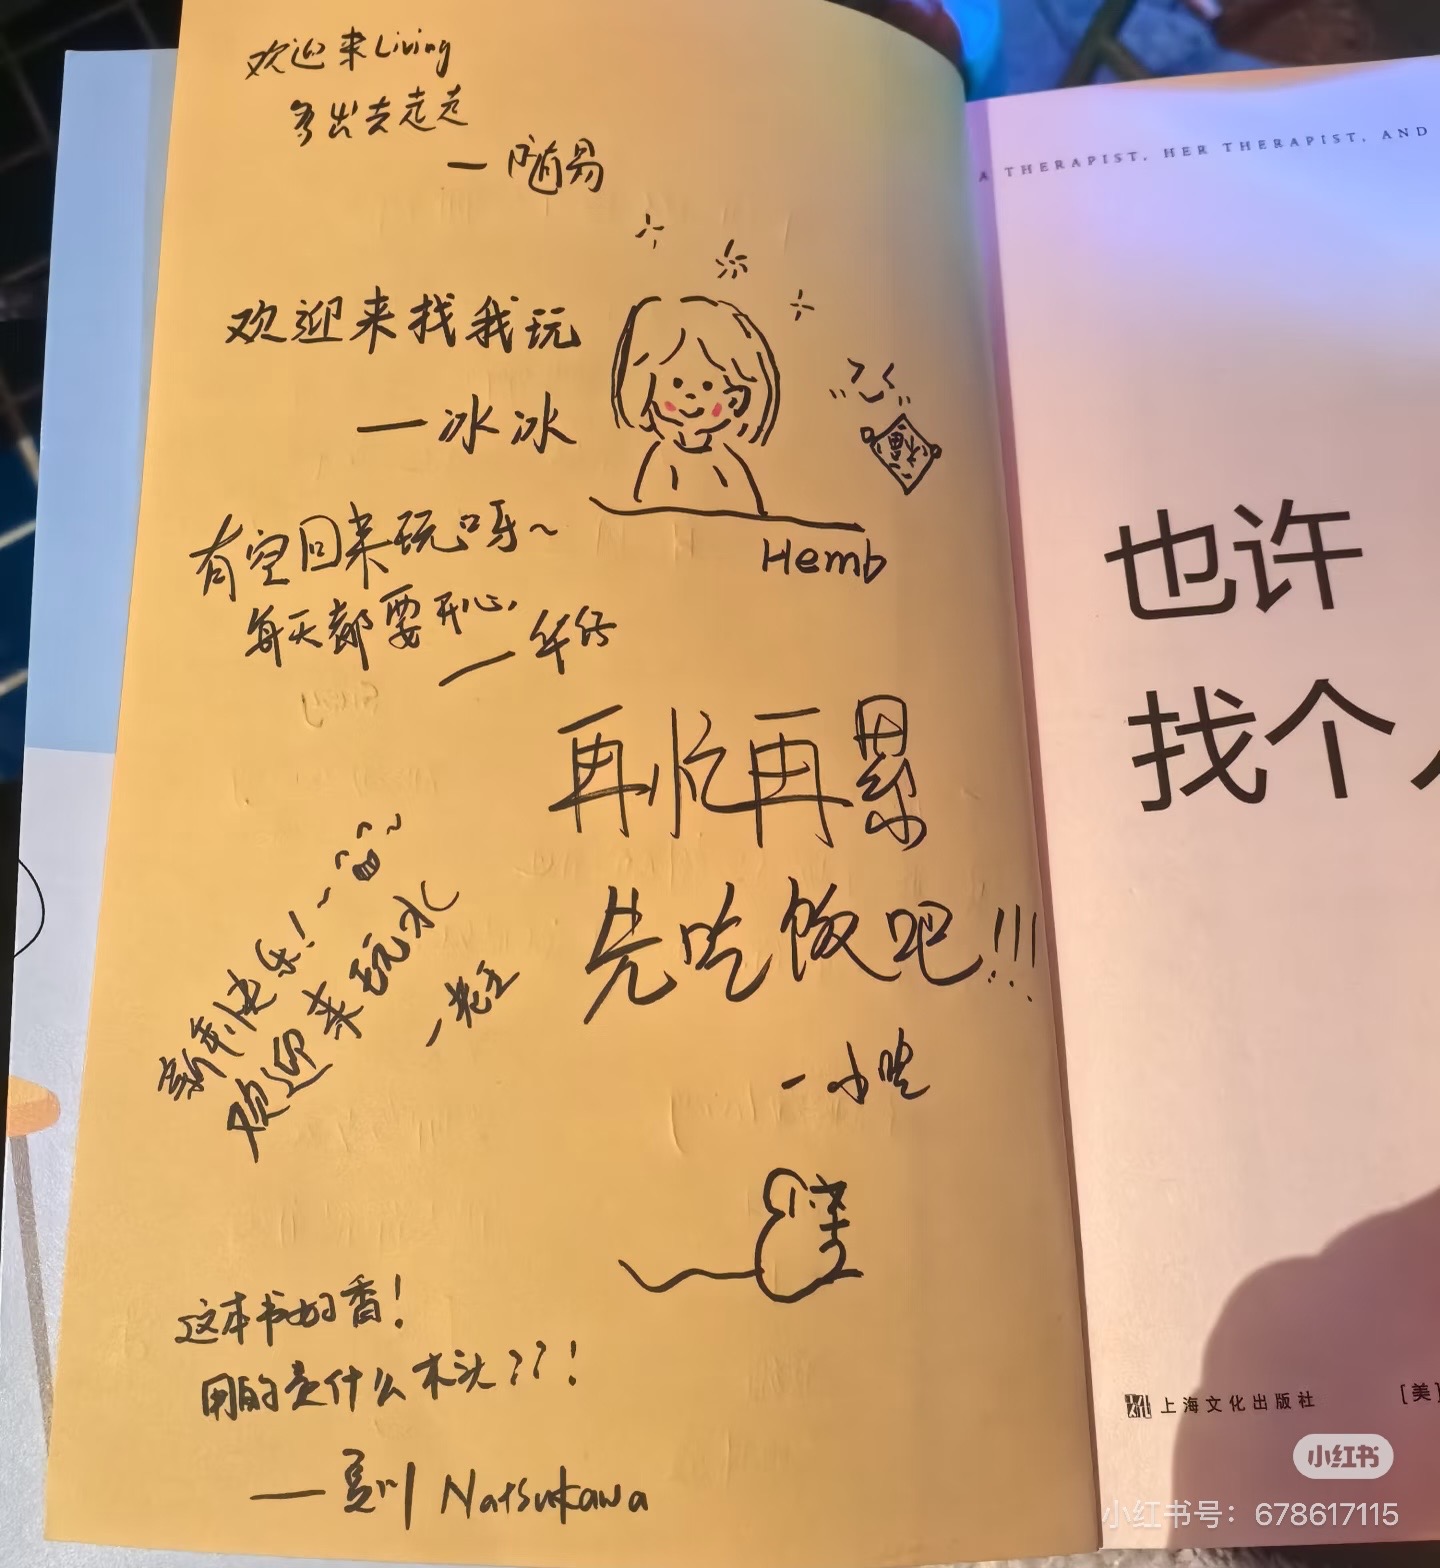 欢迎来Living
多出去走走
— 随易
欢迎来找我玩
— 冰冰
福
Hemb
有空回来玩呀~
每天都要开心,
— 华仔
再忙再累
先吃饭吧!!!
— 小吃
新年快乐!~
欢迎来玩水
— 老王
这本书好香!
用的是什么木头??!
— 夏川 Natsukawa
A THERAPIST, HER THERAPIST, AND
也许
找个人
上海文化出版社
[美]
小红书
小红书号: 678617115